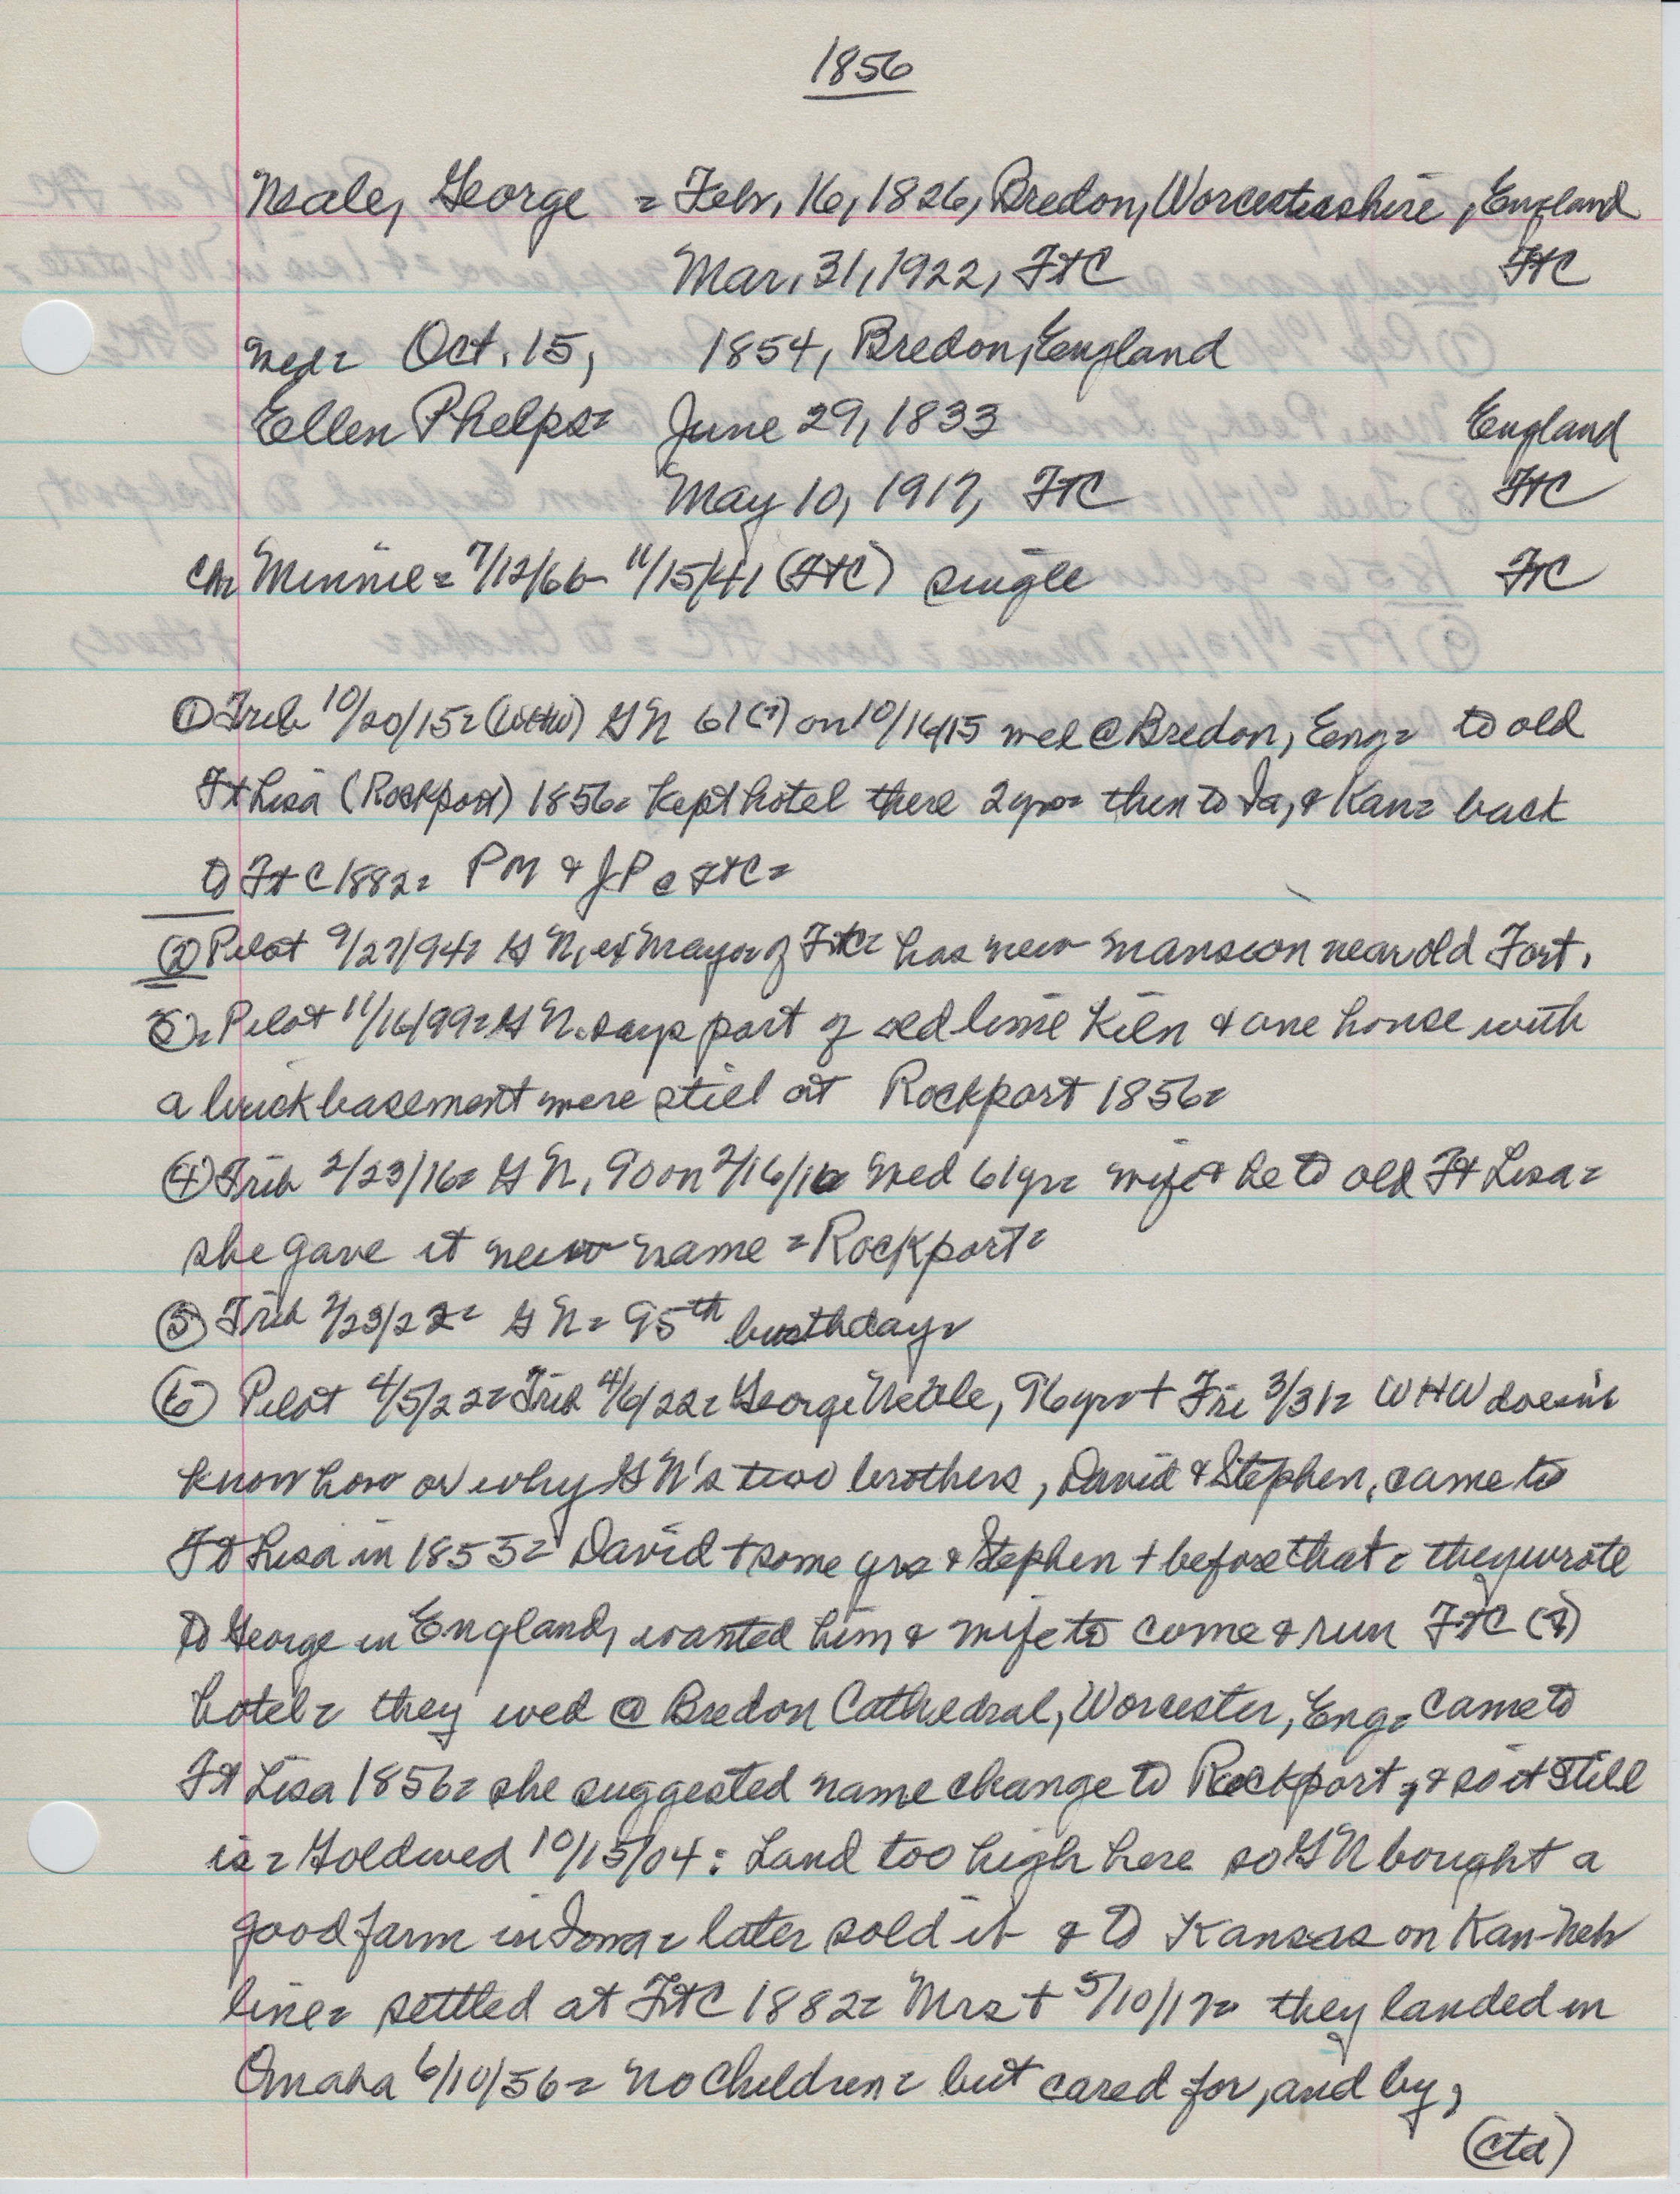 1856
Neale, George = Febr, 16, 1826, Bredon, Worcestershire, England
Mar, 31, 1922, FtC FtC
wed= Oct. 15, 1854, Bredon, England
Ellen Phelps= June 29, 1833 England
May 10, 1917, FtC FtC
chr Minnie = 7/12/66- 11/15/41 (FtC) single FtC
① Trib 10/20/15= (WHW) GN 61(?) on 10/16/15 wed @ Bredon, Eng= to old
Ft Lisa (Rockport) 1856= kept hotel there 2 yrs= then to Ia, & Kan= back
to Ft C 1882= PM & JP @ FtC=
② Pilot 9/27/94= GN, ex Mayor of FtC= has new mansion near old Fort.
③= Pilot 11/16/99= GN. says part of old lime kiln & one house with
a brick basement were still at Rockport 1856=
④ Trib 2/23/16= GN, 90 on 2/16/16 wed 61 yr= wife & he to old Ft Lisa=
she gave it new name = Rockport=
⑤ Trib 2/23/22= GN= 95th birthday=
⑥ Pilot 4/5/22= Trib 4/6/22= George Neale, 96 yrs + Fri 3/31= WHW doesn't
know how or why GN's two brothers, David & Stephen, came to
Ft Lisa in 1855= David + some yrs & Stephen + before that= they wrote
to George in England, wanted him & wife to come & run FtC (?)
hotel= they wed @ Bredon Cathedral, Worcester, Eng= came to
Ft Lisa 1856= she suggested name change to Rockport, & so it still
is= Goldwed 10/15/04: Land too high here so GN bought a
good farm in Iowa= later sold it & to Kansas on Kan-Neb
line= settled at FtC 1882= Mrs + 5/10/17= they landed in
Omaha 6/10/56= no children= but cared for, and by,
(ctd)